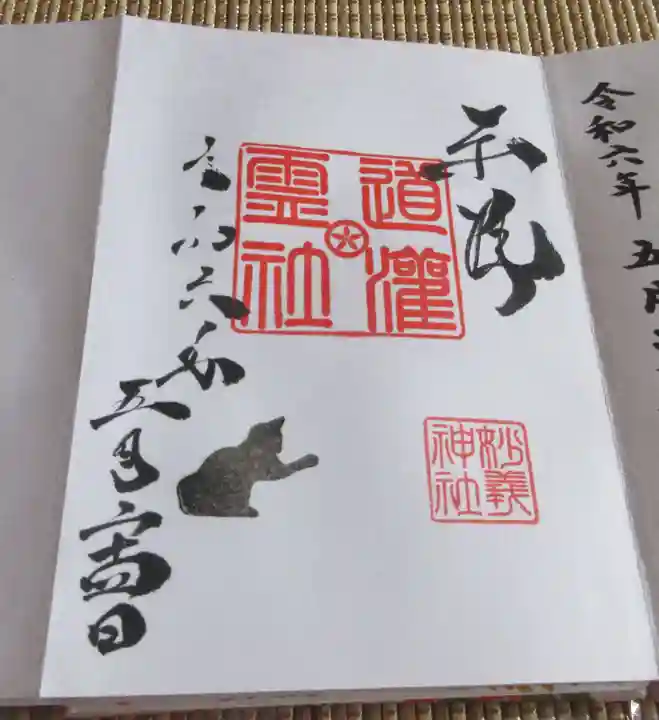 令和六年 五月
奉拝
道灌
霊社
令和六年
五月
日
妙義
神社